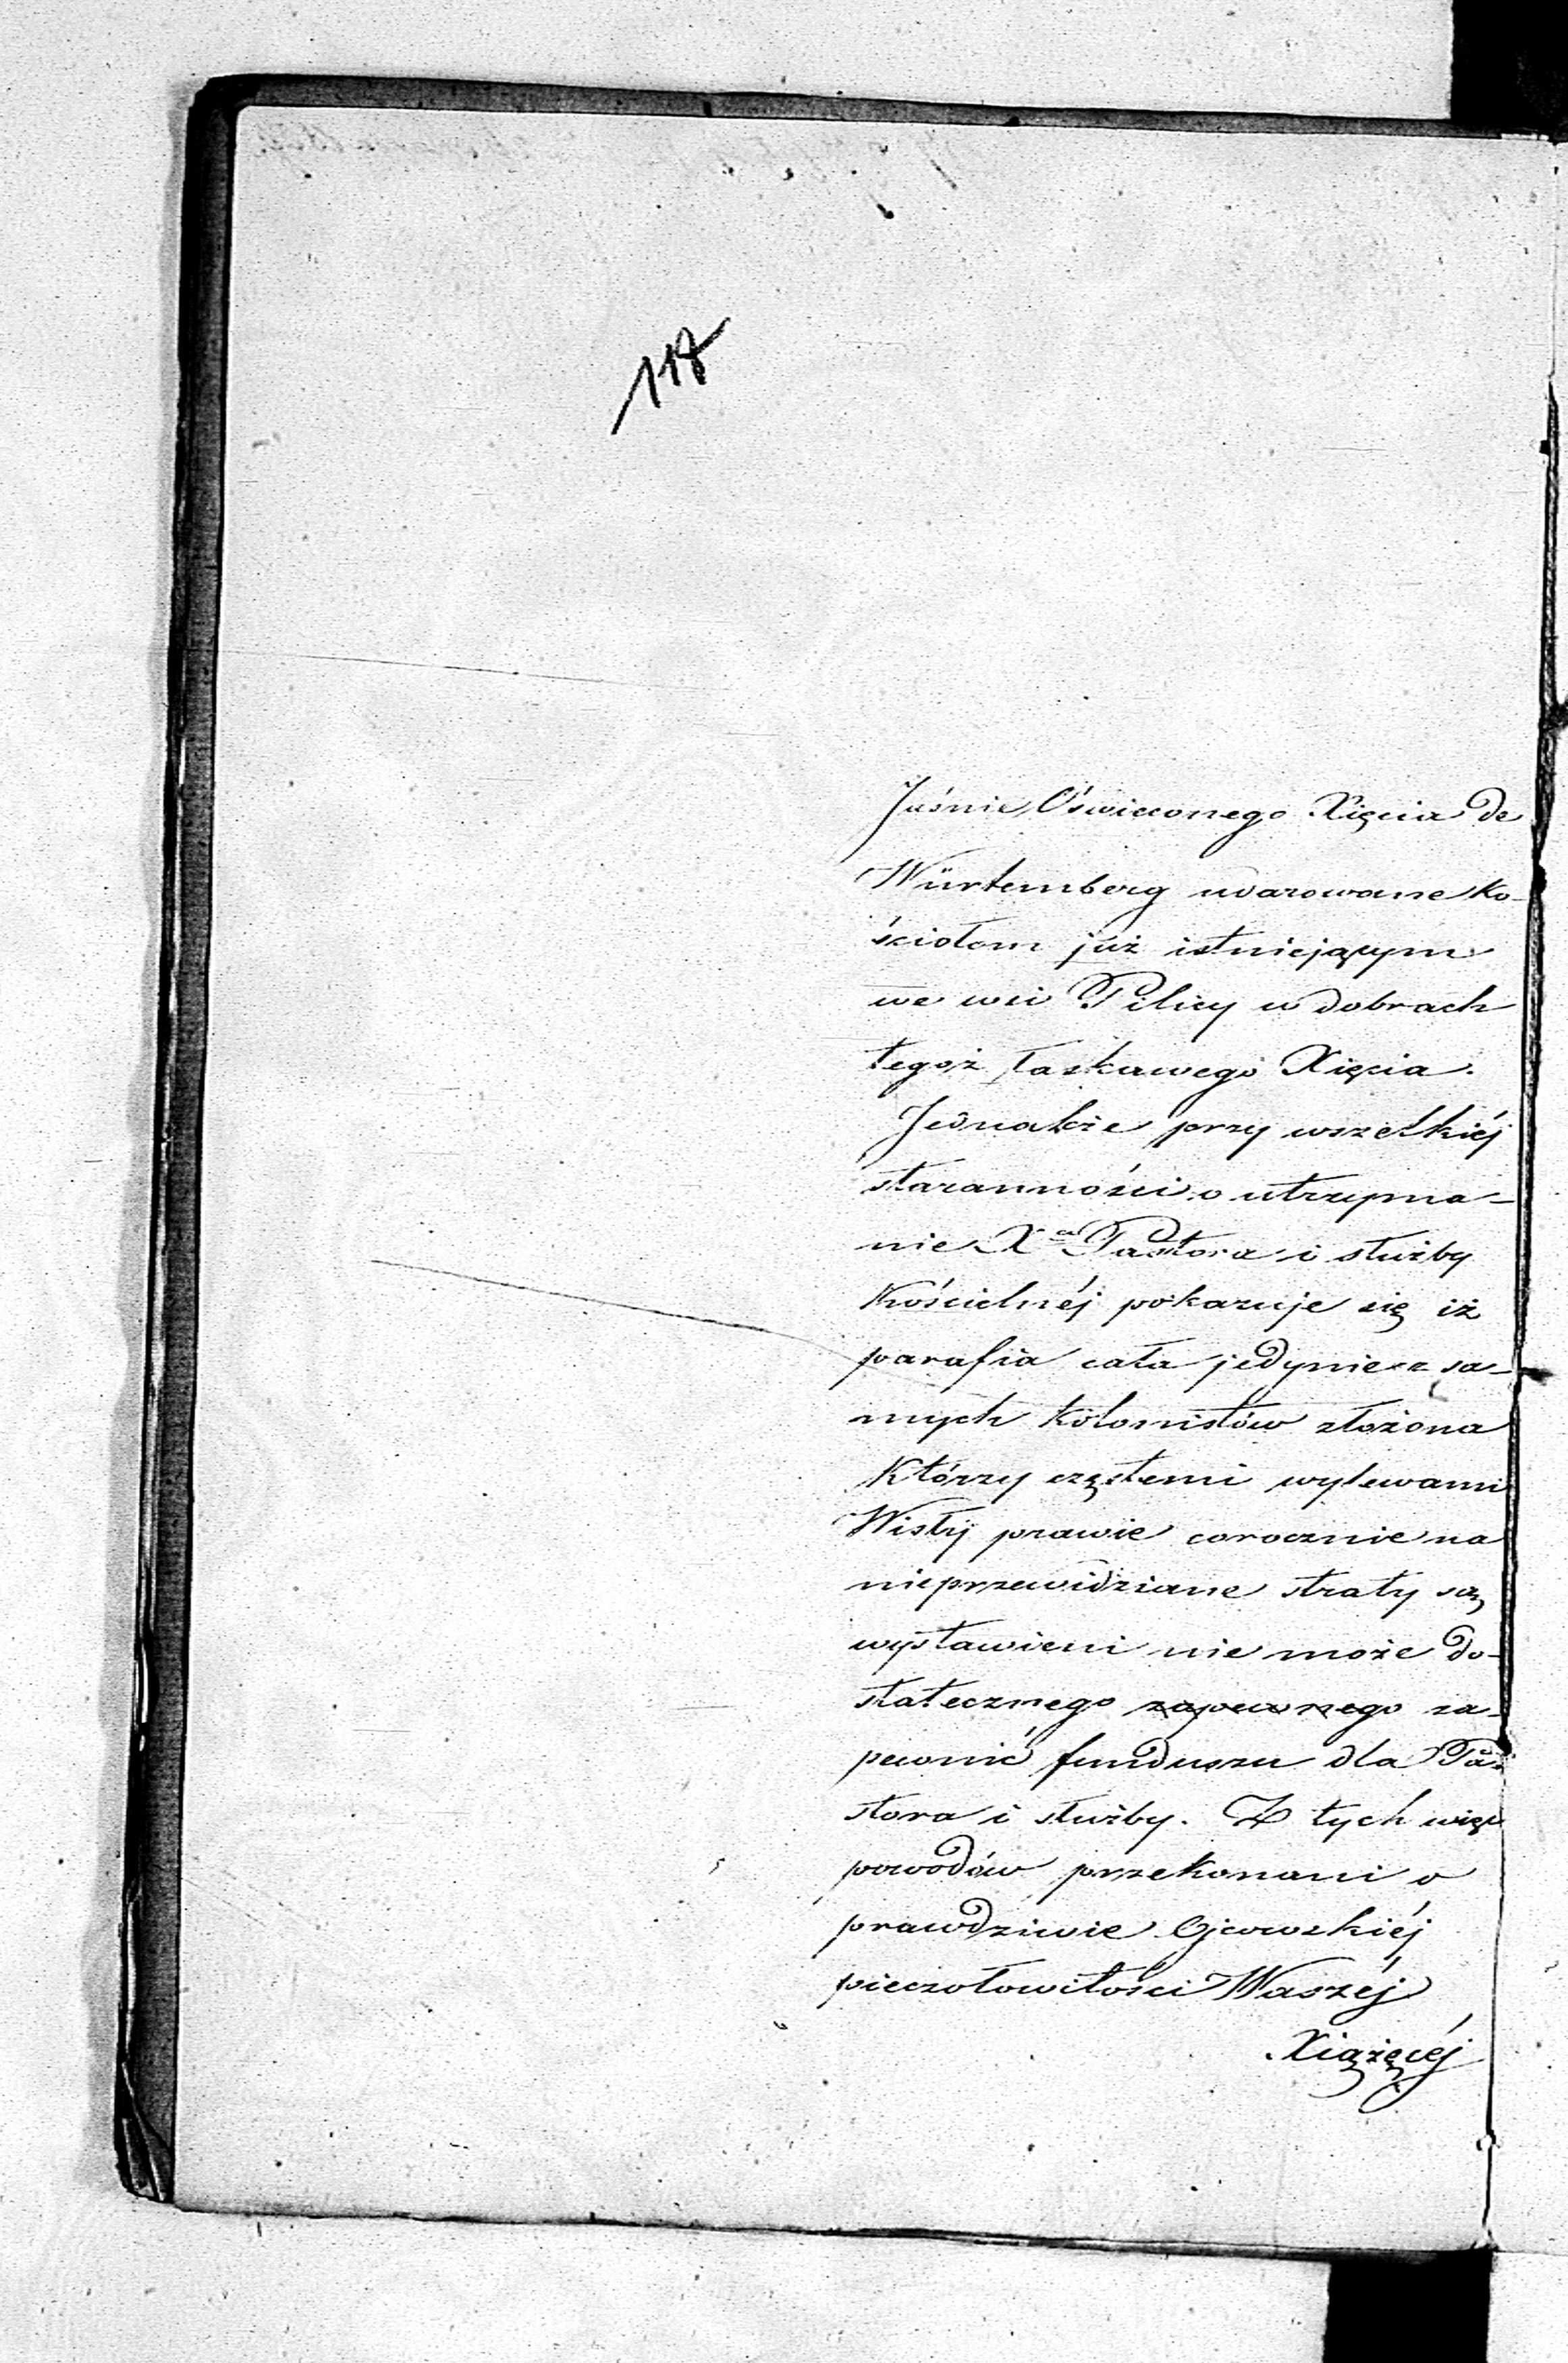 117
Jaśnie Oświeconego Xięcia de
Würtemberg udarowane ko-
ściołom już istniejącym
we wsi Pilicy w dobrach
tegoż łaskawego Xięcia.
Jednakże przy wszelkiéj
staranności o utrzyma-
nie Xa Pastora i służby
Kościelnéj pokazuje się iż
parafia cała jedynie z sa-
mych kolonistów złożona
Którzy częstemi wylewami
Wisły prawie corocznie na
nieprzewidziane straty są
wystawieni nie może do-
statecznego zapewnego za-
pewnić funduszu dla Pa-
stora i służby. Z tych więc
powodów przekonani o
prawdziwie Ojcowskiéj
pieczołowitości Waszéj
Xiążęcéj